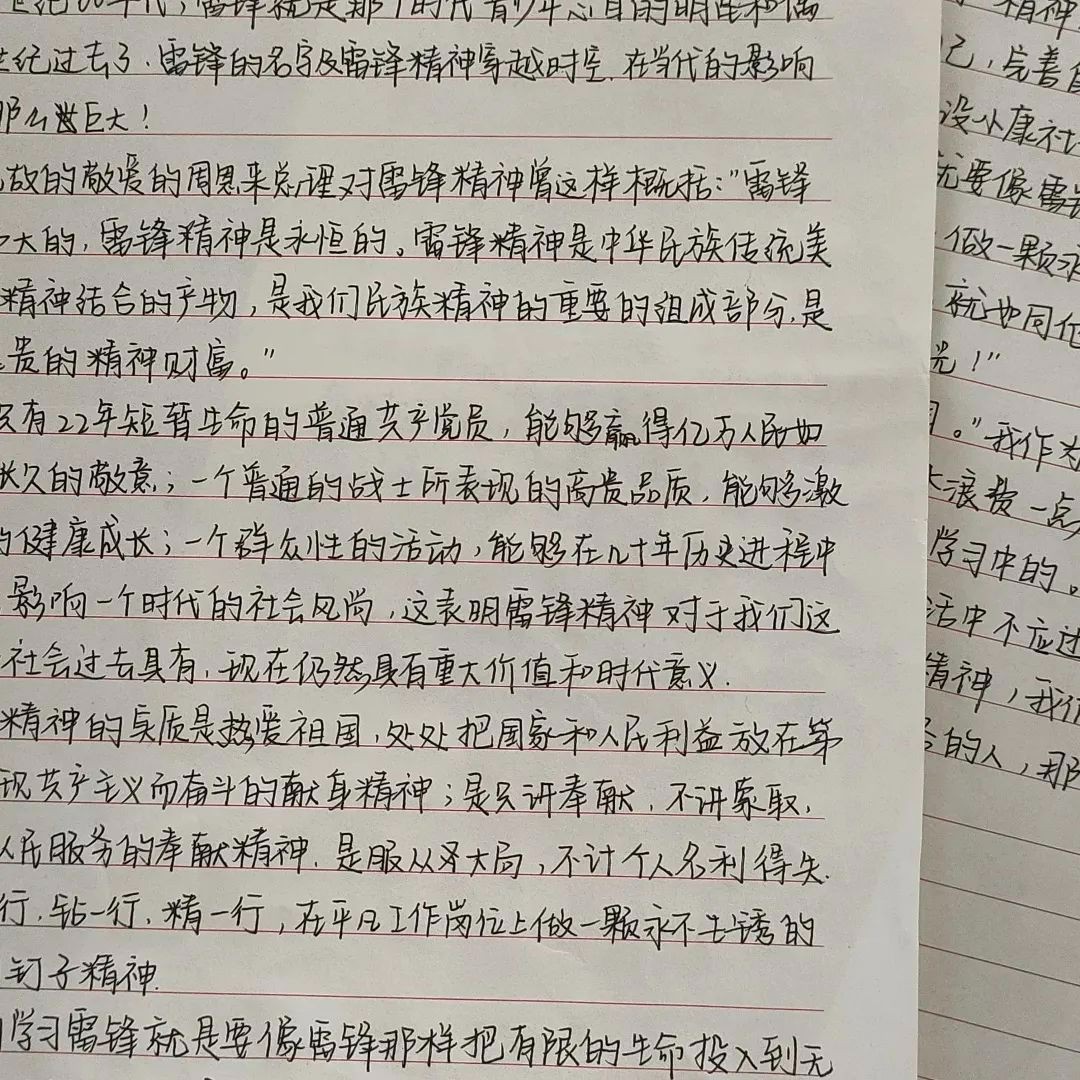 世纪60年代，雷锋就是那个时代青少年心目的明星和偶
世纪过去了，雷锋的名字及雷锋精神穿越时空，在当代的影响
那么巨大！
故的敬爱的周恩来总理对雷锋精神曾这样概括："雷锋
大的，雷锋精神是永恒的。雷锋精神是中华民族传统美
精神结合的产物，是我们民族精神的重要的组成部分，是
贵的精神财富。"
只有22年短暂生命的普通共产党员，能够赢得亿万人民如
长久的敬意；一个普通的战士所表现的高贵品质，能够激
的健康成长；一个群众性的活动，能够在几十年历史进程中
影响一个时代的社会风尚，这表明雷锋精神对于我们这
社会过去具有，现在仍然具有重大价值和时代意义.
精神的实质是热爱祖国，处处把国家和人民利益放在第
现共产主义而奋斗的献身精神；是只讲奉献，不讲索取，
人民服务的奉献精神，是服从大局，不计个人名利得失.
行，钻一行，精一行，在平凡工作岗位上做一颗永不生锈的
钉子精神.
学习雷锋就是要像雷锋那样把有限的生命投入到无
精神
己，完善自
没小康社
就要像雷锋
做一颗永
就如同化
光！"
。"我作为
浪费一点
学习中的。
活中不应
精神，我们
的人，那